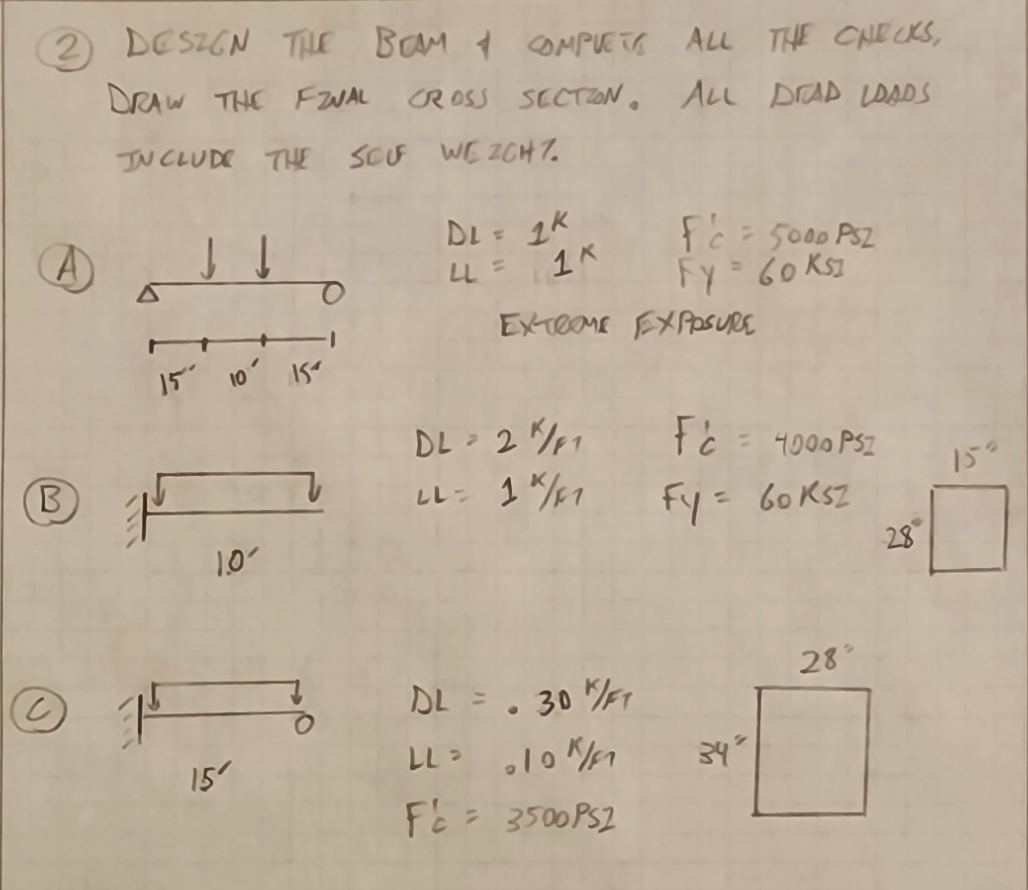 2 DESIGN THE BEAM & COMPLETE ALL THE CHECKS,
DRAW THE FINAL CROSS SECTION. ALL DEAD LOADS
INCLUDE THE SELF WEIGHT.
A DL = 1K F'c = 5000 PSI
LL = 1K Fy = 60 KSI
EXTREME EXPOSURE
15' 10' 15'
B DL = 2 K/FT F'c = 4000 PSI 15"
LL = 1 K/FT Fy = 60 KSI 28"
10'
C DL = .30 K/FT 28"
LL = .10 K/FT 34"
15'
F'c = 3500 PSI